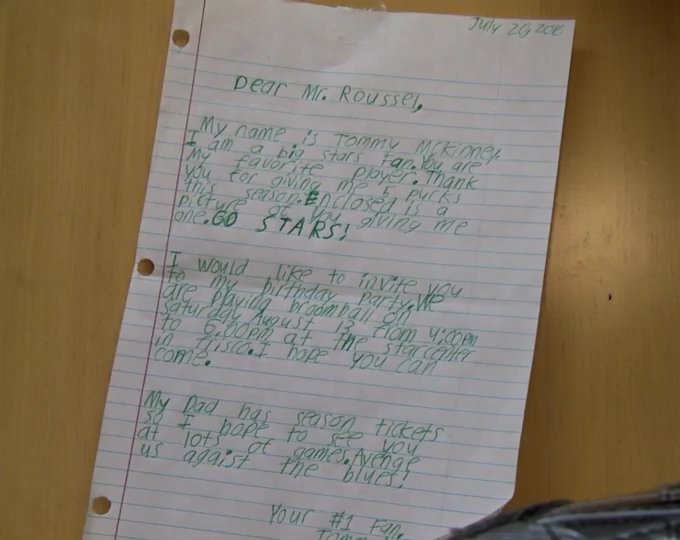 July 20, 2016
Dear Mr. Roussel,
My name is Tommy McKinney.
I am a big stars Fan. You are
My favorite player. Thank
you for giving me 5 pucks
this season. Enclosed is a
picture of you giving me
one. GO STARS!
I would like to invite you
to my birthday party. We
are playing broomball on
Saturday August 13 from 4:00pm
to 6:00pm at the starcenter
in frisco. I hope you can
come.
My Dad has season tickets
so I hope to see you
at lots of games. Avenge
us agaist the blues!
Your #1 Fan,